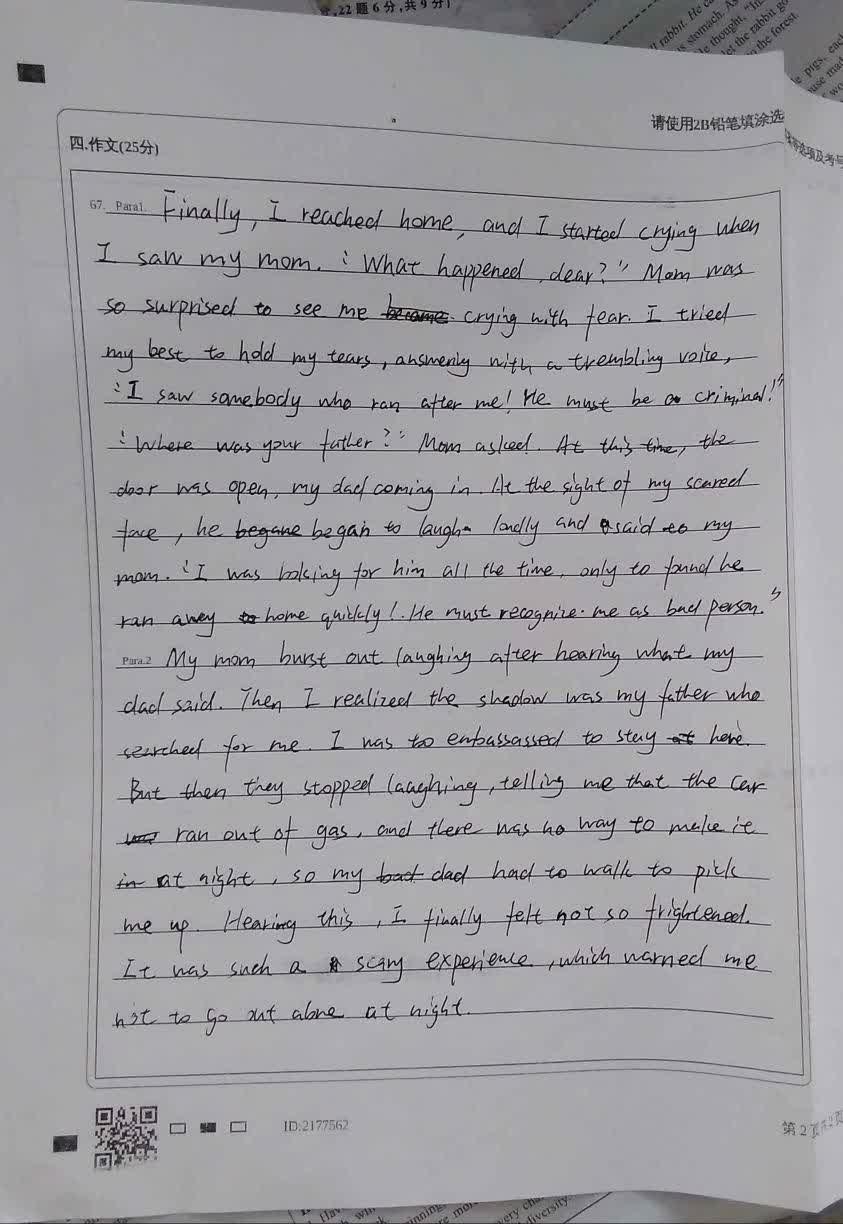 ,22题6分,共9分)
l rabbit. He ca
s stomach. As
le thought, "In
let the rabbit go
the forest
e pigs, each
use mad
请使用2B铅笔填涂选
选项及考号
四.作文(25分)
67. Para1. Finally, I reached home, and I started crying when
I saw my mom. "What happened, dear?" Mom was
so surprised to see me became crying with fear. I tried
my best to hold my tears, answerly with a trembling voice,
"I saw somebody who ran after me! He must be a criminal!"
"Where was your father?" Mom asked. At this time, the
door was open, my dad coming in. At the sight of my scared
face, he begane began to laugh loudly and said to my
mom. "I was looking for him all the time, only to found he
ran away to home quickly! He must recognize me as bad person."
Para.2 My mom burst out laughing after hearing what my
dad said. Then I realized the shadow was my father who
searched for me. I was to embassassed to stay at here.
But then they stopped laughing, telling me that the car
was ran out of gas, and there was no way to make it
in at night, so my bad dad had to walk to pick
me up. Hearing this, I finally felt not so frightened.
It was such a scary experience, which warned me
not to go out alone at night.
ID:2177562
第2页共2页